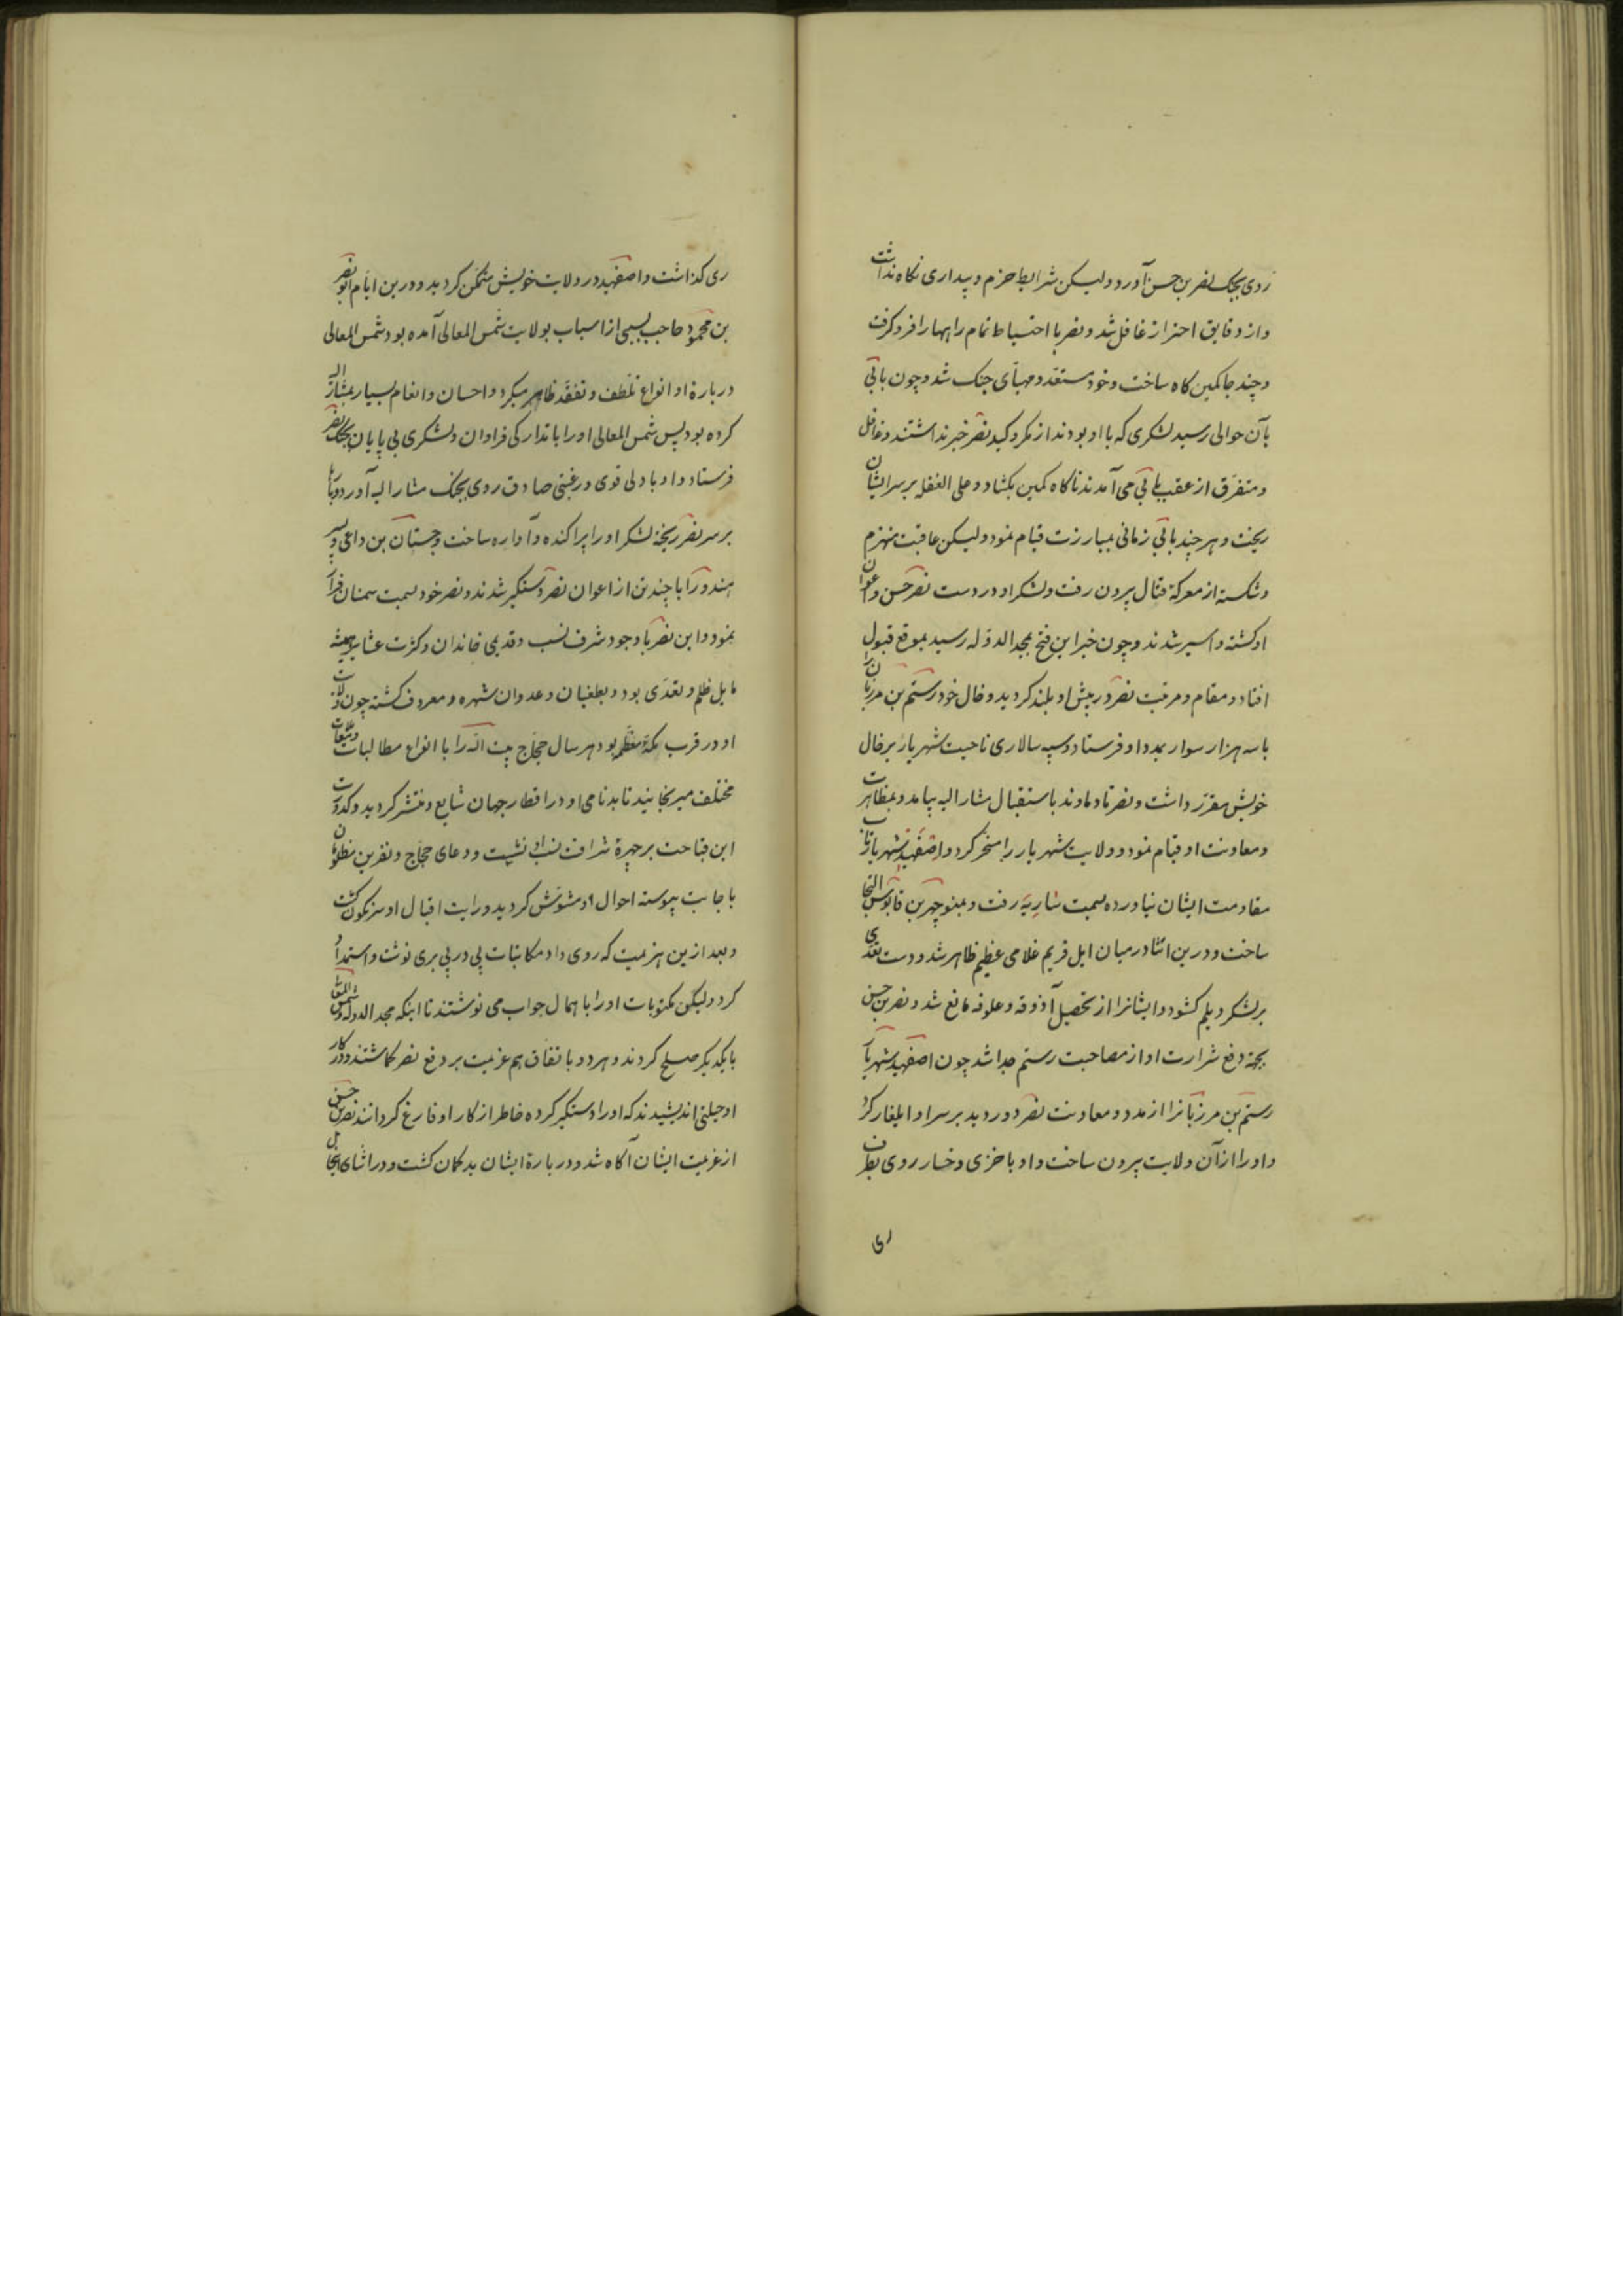 روی بجنک نصر بن حسن آورد ولیکن شرایط حزم و بیداری نکاه نداشت
و از دقایق احتراز غافل شد و نصر با احتیاط تمام راهها را فرو کرفت
و چند جا کمین کاه ساخت و خود مستعد و مهیأی جنک شد و چون باتی
بآن حوالی رسید لشکری که با او بودند از مکر و کید نصر خبر نداشتند و غافل
و متفرق از عقب باتی می آمدند ناکاه کمین بکشاد و علی الغفله بر سر ایشان
ریخت و هر چند باتی زمانی بمبارزت قیام نمود ولیکن عاقبت منهزم
و شکسته از معرکهٔ قتال بیرون رفت و لشکر او در دست نصر حسن و اعوان
او کشته و اسیر شدند و چون خبر این فتح بمجد الدوله رسید بموقع قبول
افتاد و مقام و مرتبت نصر در پیش او بلند کردید و خال خود رستم بن مرزبان را
با سه هزار سوار بمدد او فرستاد و سپه سالاری ناحیت شهریار بر خال
خویش مقرر داشت و نصر تا دماوند باستقبال مشار الیه بیامد و بمظاهرت
و معاونت او قیام نمود و ولایت شهریار را مسخر کرد و اصفهبد شهریار تاب
مقاومت ایشان نیاورده بسمت ساریه رفت و بمنوچهر بن قابوس التجا
ساخت و درین اثنا در میان اهل فریم غلامی عظیم ظاهر شد و دست تعدی
بر لشکر دیلم کشود و ایشانرا از تحصیل آذوقه و علوفه مانع شد و نصر بن حسن
بجهة دفع شرارت او از مصاحبت رستم جدا شد چون اصفهبد شهریار
رستم بن مرزبانرا از مدد و معاونت نصر دور دید بر سر او ایلغار کرد
و او را از آن ولایت بیرون ساخت و او با خزی و خسار روی بطرف
ری
ری کذاشت و اصفهبد در ولایت خویش متمکن کردید و درین ایام ابو نصر
بن محمود حاجب بسببی از اسباب بولایت شمس المعالی آمده بود شمس المعالی
دربارهٔ او انواع تلطف و تفقد ظاهر میکرد و احسان و انعام بسیار بمشار الیه
کرده بود پس شمس المعالی او را با تدارکی فراوان و لشکری بی پایان بجنک نصر
فرستاد و او با دلی قوی و رغبتی صادق روی بجنک مشار الیه آورد و
بر سر نصر ریخته لشکر او را پراکنده و آواره ساخت و جستان بن داعی و پسر
هندو را با چند تن از اعوان نصر دستکیر شدند و نصر خود بسمت سمنان فرار
بنمود و این نصر با وجود شرف نسب و قدیمی خاندان و کثرت عشایر همیشه
مایل ظلم و تعدی بود و بطغیان و عدوان شهره و معروف کشته چون ولایت
او در قرب مکهٔ معظمه بود هر سال حجاج بیت الله را با انواع مطالبات و تبعات
مختلف میرنجانید تا بدنامی او در اقطار جهان شایع و منتشر کردید و کدورت
این قباحت بر چهرهٔ شرافت نسب او نشست و دعای حجاج و نفرین مظلومان
باجابت پیوسته احوال او مشوش کردید و رایت اقبال او سرنکون کشت
و بعد از این هزیمت که روی داد مکاتبات پی در پی بری نوشت و استمداد
کرد ولیکن مکتوبات او را باهمال جواب می نوشتند تا اینکه مجد الدوله و شمس المعالی
با یکدیکر صلح کردند و هر دو باتفاق هم عزیمت بر دفع نصر کماشتند و در کار
او حیلتی اندیشیدند که او را دستکیر کرده خاطر از کار او فارغ کردانند نصر بن حسن
از عزیمت ایشان آکاه شد و دربارهٔ ایشان بدکمان کشت و در اثنای